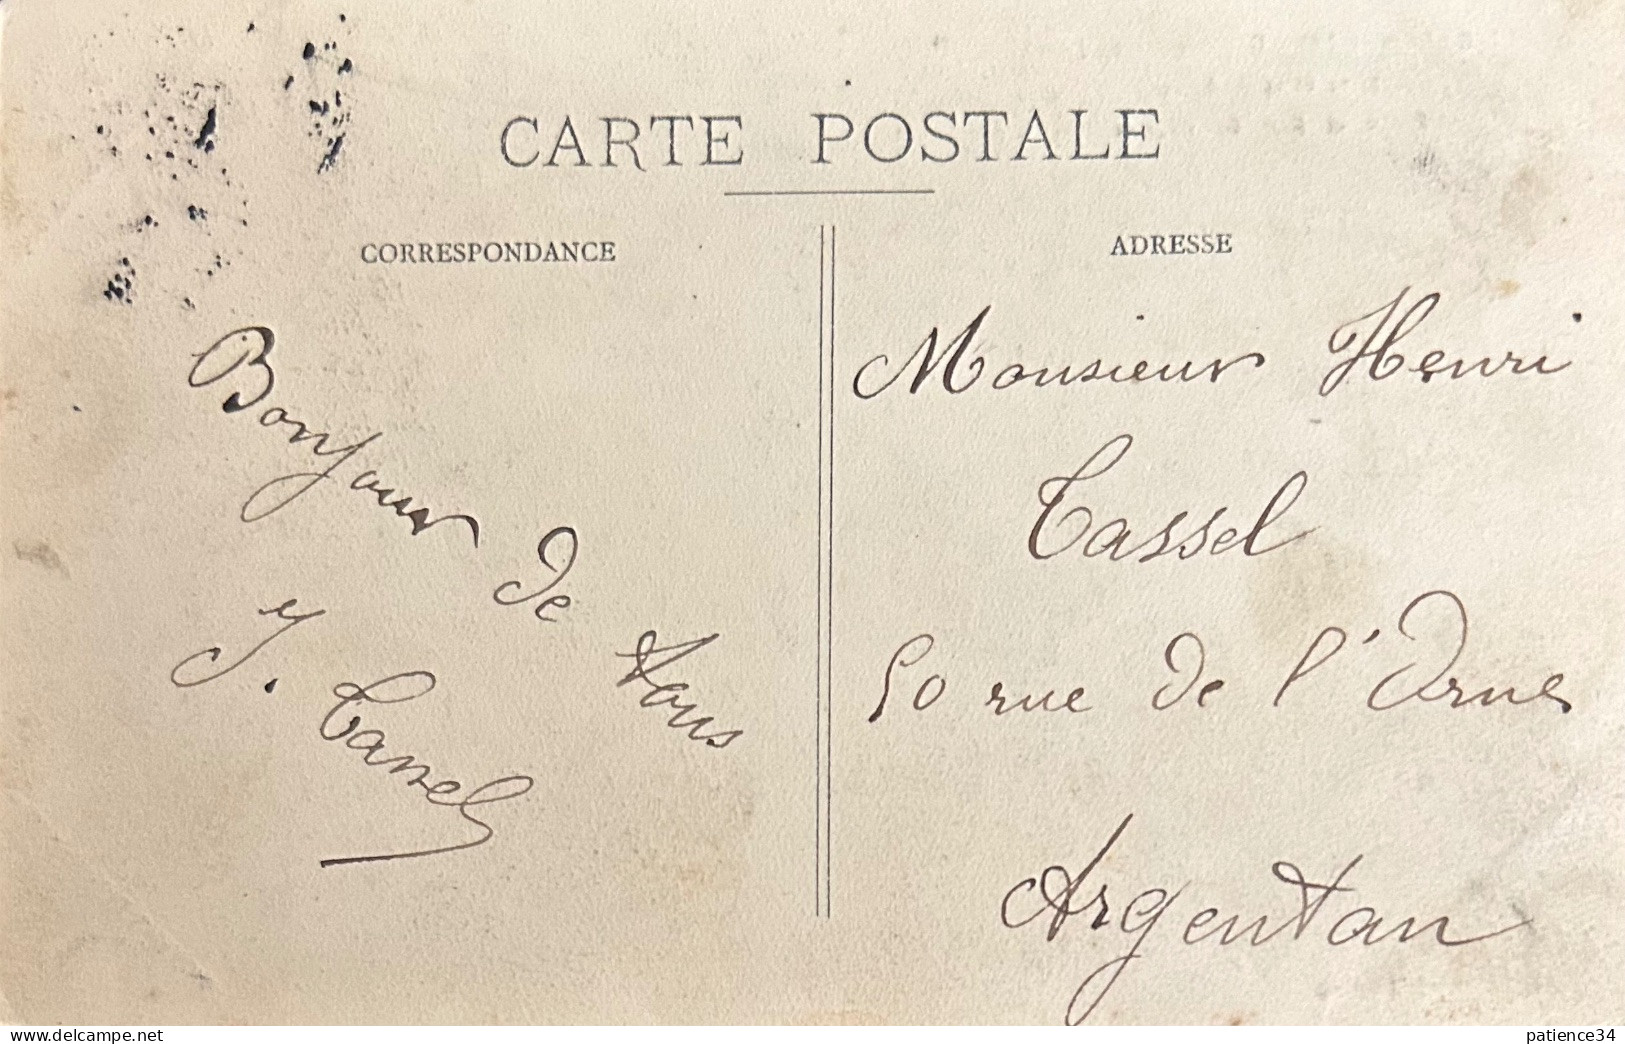 CARTE POSTALE
CORRESPONDANCE
Bonjour de tous
J. Cassel
ADRESSE
Monsieur Henri
Cassel
50 rue de l'Orne
Argentan
www.delcampe.net
patience34